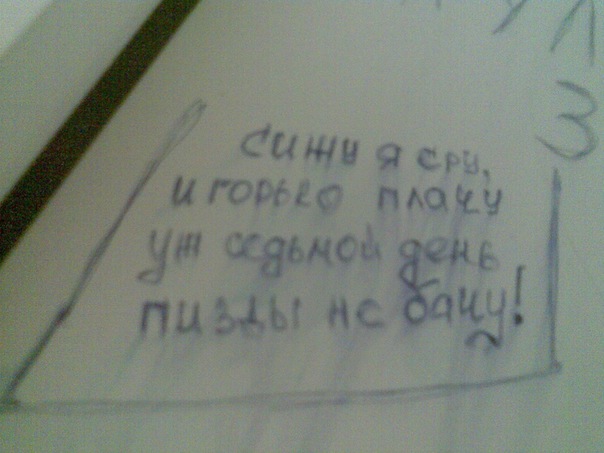 З
сижу я сру,
и горько плачу
уж седьмой день
пизды не бачу!